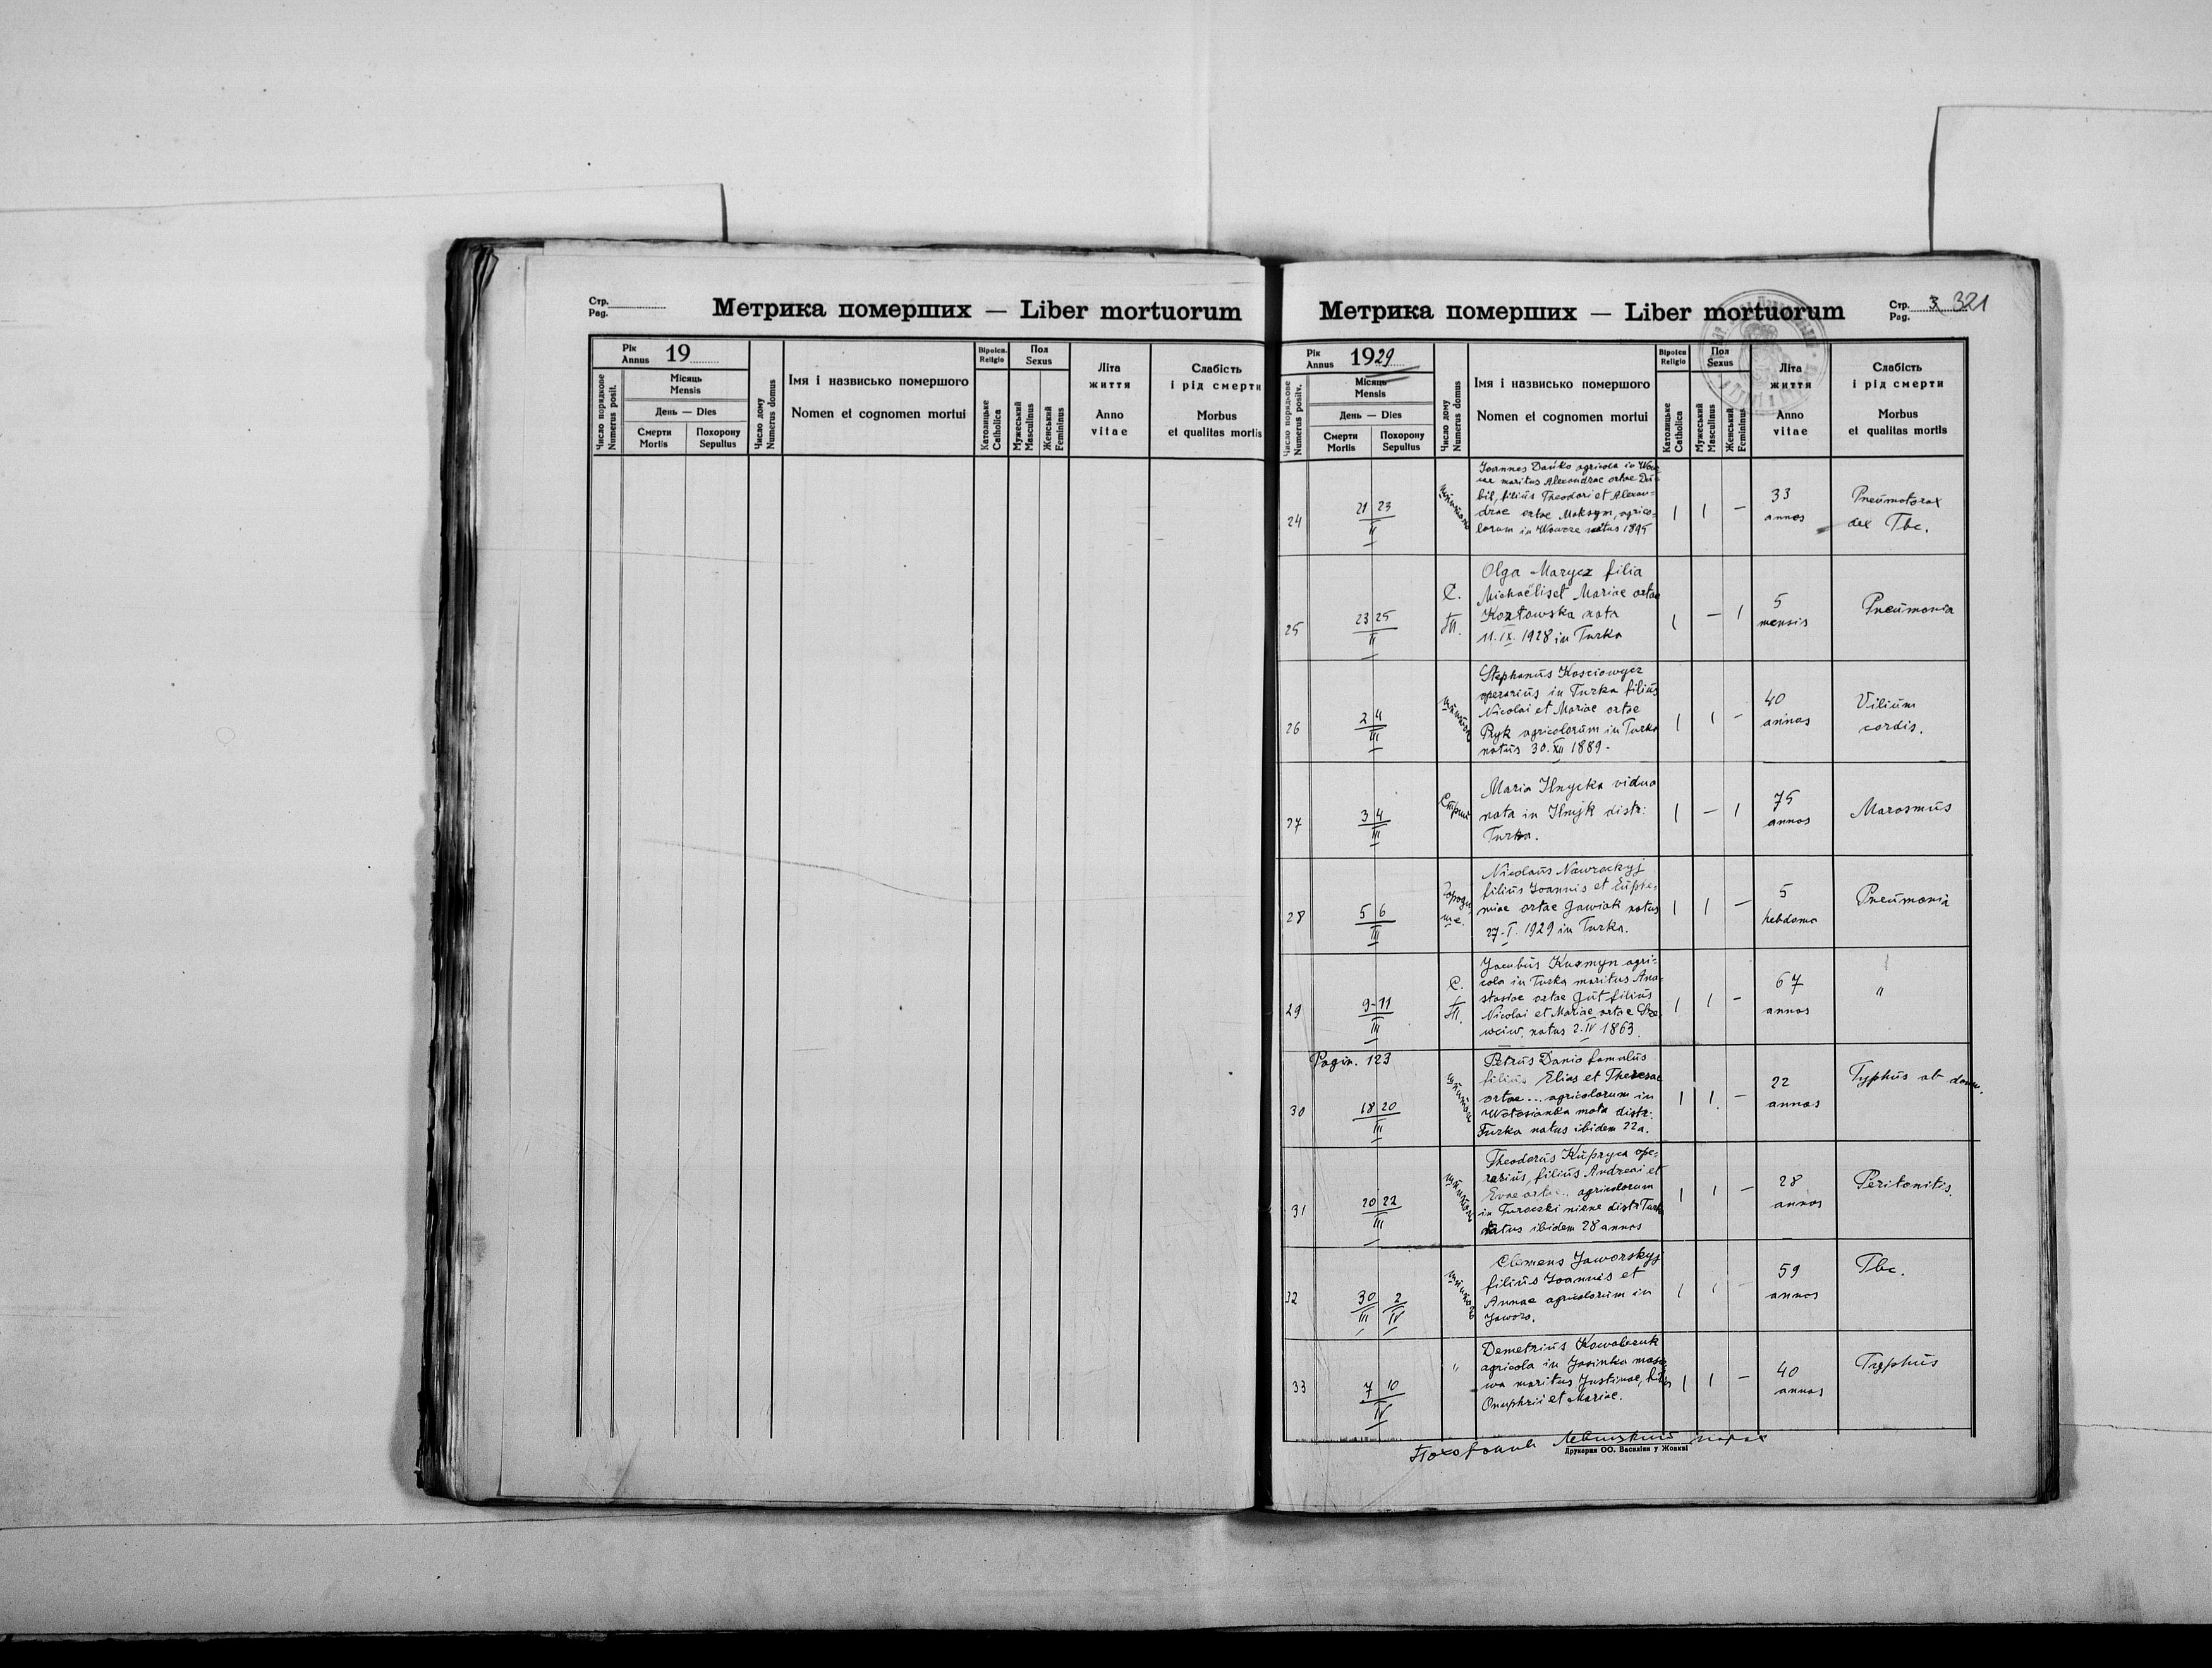 Стр.
Pag.
Метрика померших — Liber mortuorum
Рік
Annus 19
Місяць
Mensis
День — Dies
Смерти
Mortis
Похорону
Sepultus
Число порядкове
Numerus posit.
Число дому
Numerus domus
Імя і назвисько помершого
Nomen et cognomen mortui
Віроісп.
Religio
Католицьке
Catholica
Пол
Sexus
Мужеський
Masculinus
Женський
Femininus
Літа
життя
Anno
vitae
Слабість
і рід смерти
Morbus
et qualitas mortis
Метрика померших — Liber mortuorum
Стр.
Pag. 3 321
Рік
Annus 1929
Місяць
Mensis
День — Dies
Смерти
Mortis
Похорону
Sepultus
Число порядкове
Numerus positv.
Число дому
Numerus domus
Імя і назвисько помершого
Nomen et cognomen mortui
Віроісп
Religio
Католицьке
Catholica
Пол
Sexus
Мужеський
Masculinus
Женський
Femininus
Літа
життя
Anno
vitae
Слабість
і рід смерти
Morbus
et qualitas mortis
24
21 23
II
шпиталь
Joannes Dańko agricola in
maritus Alexandrae ortae
bil, filius Theodori et Alexan-
drae ortae Maksym, agrico-
larum in Wowcze natus 1895
1 1 —
33
annos
Pneumotorax
dex Tbc.
25
23 25
II
С.
П.
Olga Marycz filia
Michaëlis et Mariae ortae
Kozłowska nata
11.IX.1928 in Turka
1 — 1
5
mensis
Pneumonia
26
2 4
III
шпиталь
Stephanus Kosciowycz
operarius in Turka filius
Nicolai et Mariae ortae
Ryk agricolorum in Turka
natus 30.XII 1889-
1 1 —
40
annos
Vitium
cordis.
27
3 4
III
Стрий
Maria Ilnycka vidua
nata in Ilnyk distr:
Turka.
1 — 1
75
annos
Marasmus
28
5 6
III
Городи
ще
Nicolaus Nawrockyj
filius Joannis et Euphe-
miae ortae Gawiak natus
27-I.1929 in Turka.
1 1 —
5
hebdoma
Pneumonia
29
9-11
III
С.
П.
Jacubus Kusmyn agri-
cola in Turka maritus Ana-
stasiae ortae Gut filius
Nicolai et Mariae ortae
natus 2.IV 1863.
1 1 —
67
annos
"
Pagin. 123
30
18 20
III
шпиталь
Petrus Danio famulus
filius Elias et Theresae
ortae ... agricolorum in
Wołosianka mała distr:
Turka natus ibidem 22a.
1 1 —
22
annos
Typhus ab dom.
31
20 22
III
шпиталь
Theodorus Kuprycz ope-
rarius, filius Andreai et
Evae ortae .. agricolorum
in Turoczki niżne distr Turka
natus ibidem 28 annos
1 1 —
28
annos
Peritonitis.
32
30 2
III IV
шпиталь
Clemens Jaworskyj
filius Joannis et
Annae agricolorum in
Jawora.
1 1 —
59
annos
Tbc.
33
7 10
IV
"
Demetrius Kowalczuk
agricola in Jasinka maso
wa maritus Justinae, filius
Onuphrii et Mariae.
1 1 —
40
annos
Typhus
Похоронив Левицький парох
Друкарня ОО. Василіян у Жовкві